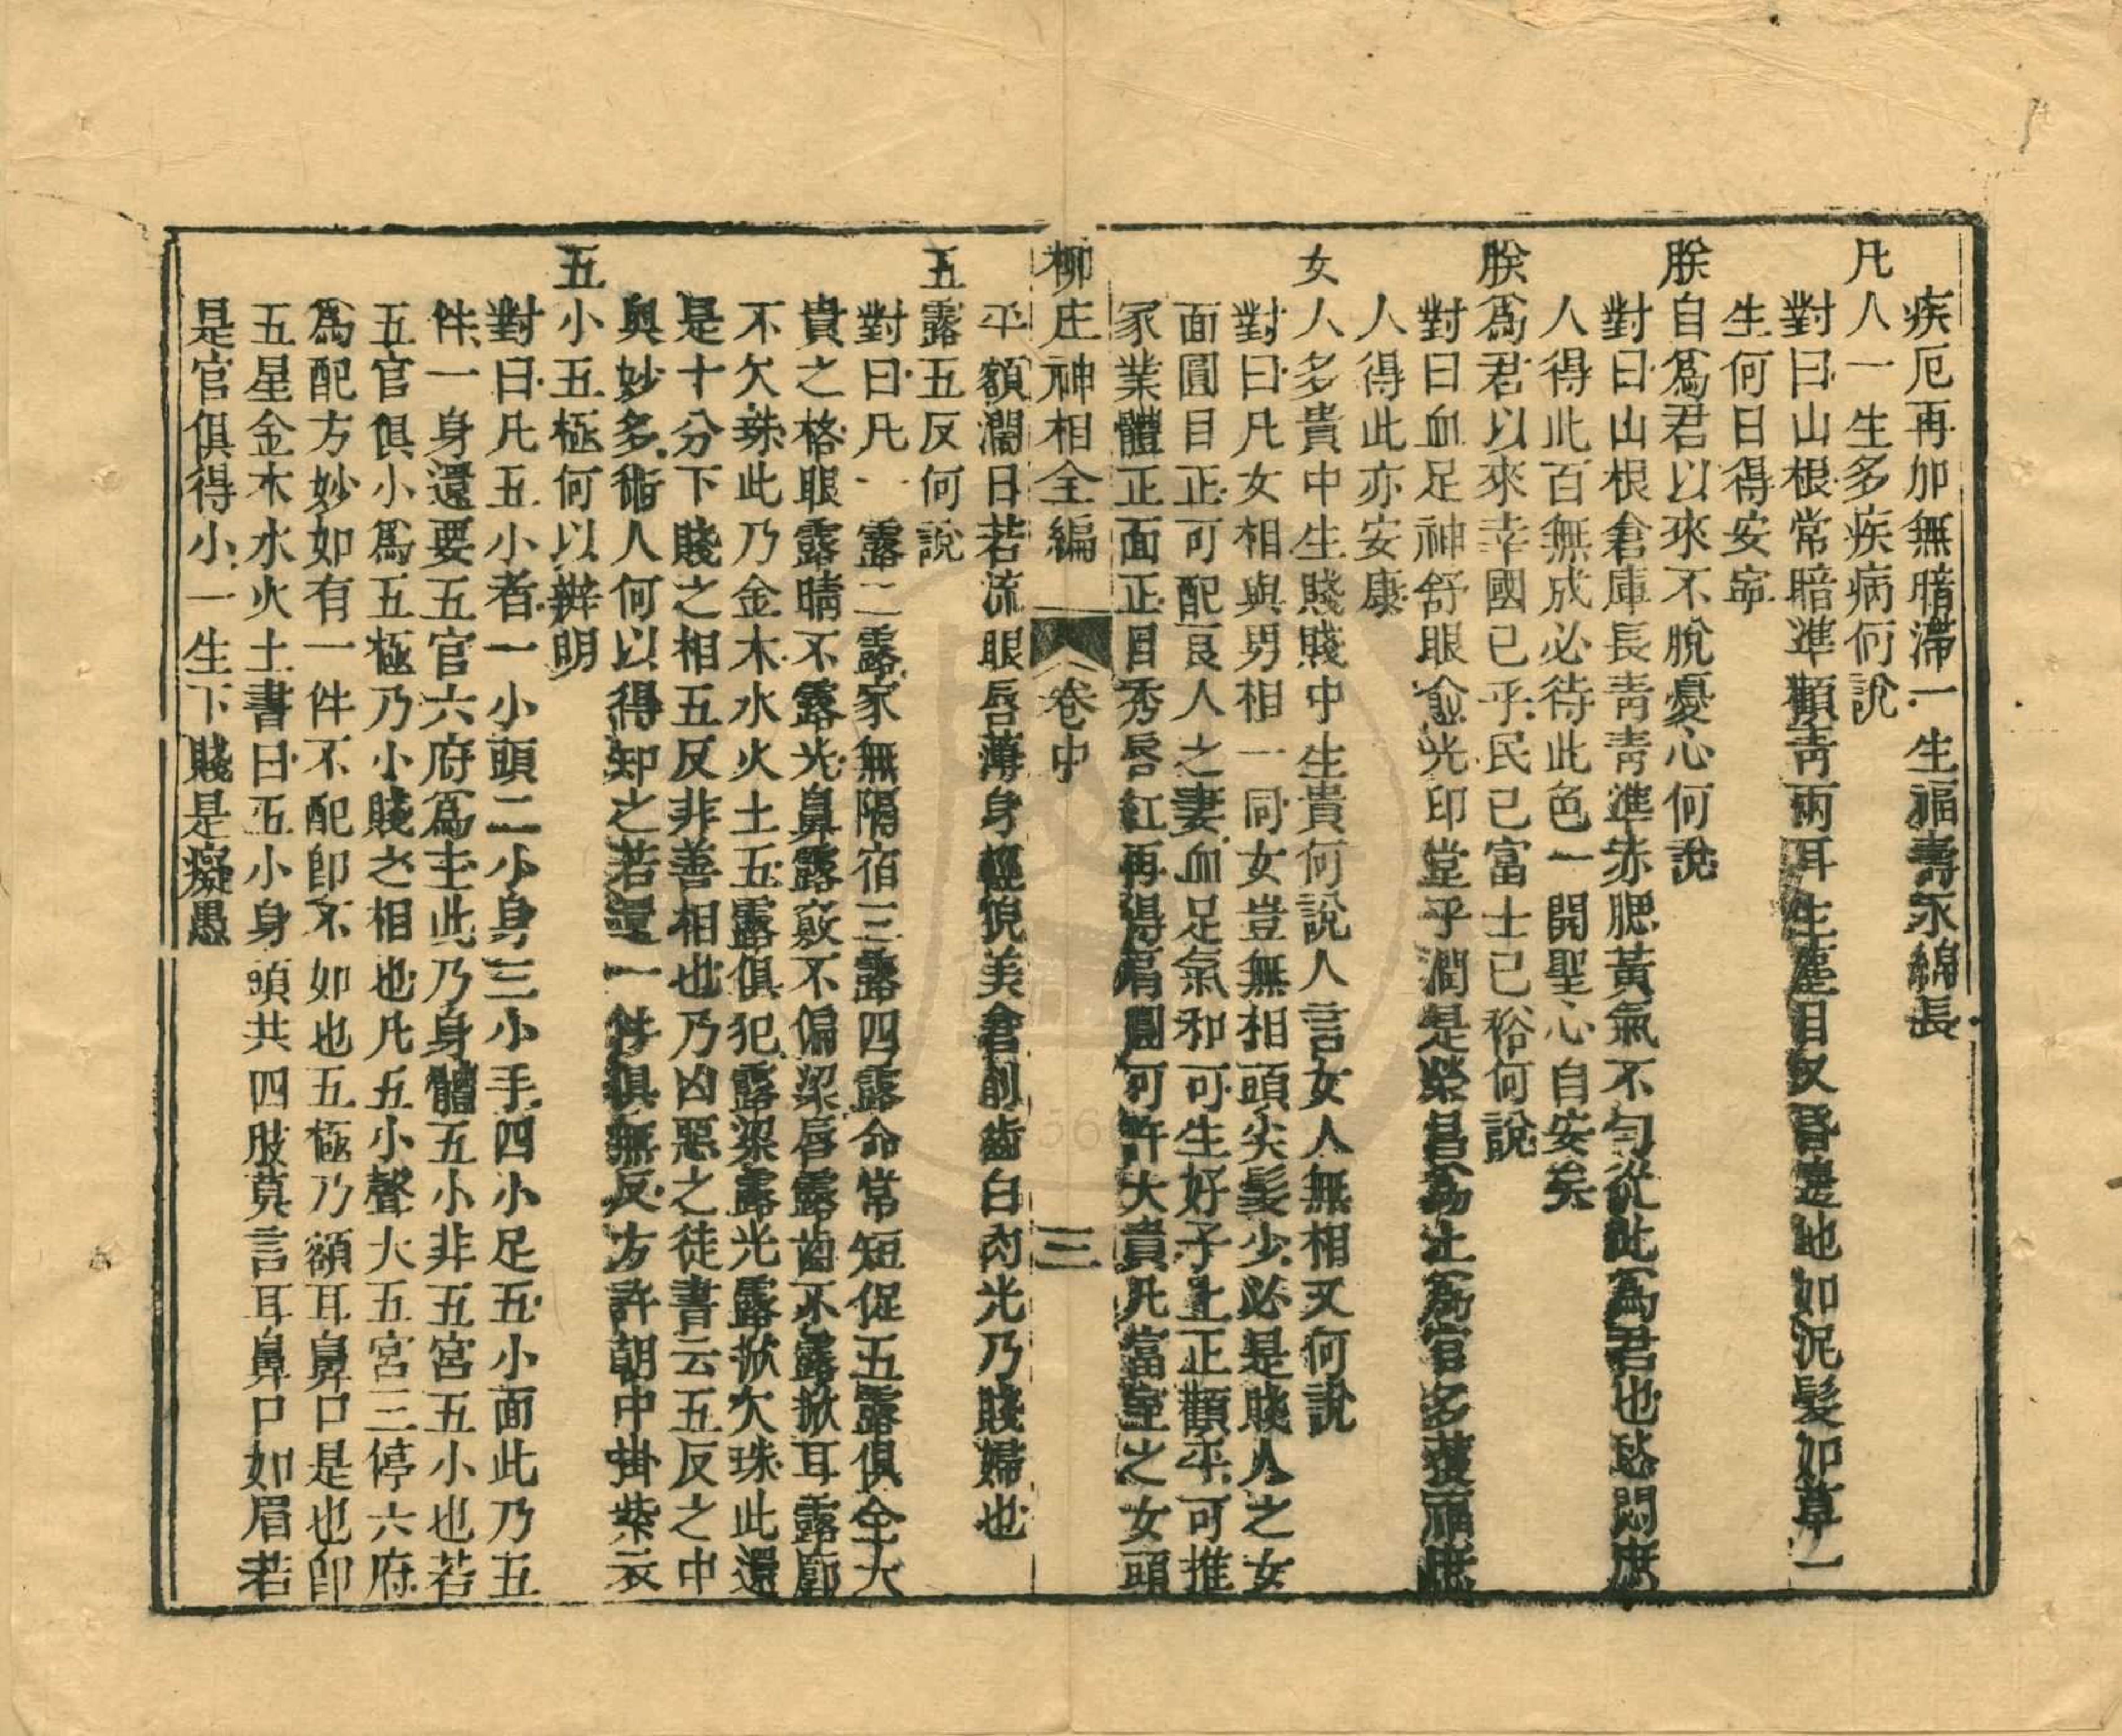 疾厄再加無暗滯一生福壽永綿長
凡人一生多疾病何說
對曰山根常暗準顴青兩耳生塵目又昏遶地如泥髮如草一
生何日得安寧
朕自爲君以來不脫憂心何說
對曰山根倉庫長青青準赤腮黃氣不勻從此爲君也愁悶庶
人得此百無成必待此色一開聖心自安矣
朕爲君以來幸國已乎民已富士已裕何說
對曰血足神舒眼愈光印堂乎潤是榮昌爲士爲官多獲福庶
人得此亦安康
女人多貴中生賤賤中生貴何說人言女人無相又何說
對曰凡女相與男相一同女豈無相頭尖髮少必是賤人之女
面圓目正可配良人之妻血足氣和可生好子土正顴平可推
家業體正面正目秀唇紅再得肩圓可許大貴凡當室之女頭
柳庄神相全編 卷中 三
平額濶日若流眼唇薄身輕貌美倉削齒白肉光乃賤婦也
五露五反何說
對曰凡一露二露家無隔宿三露四露命常短促五露俱全大
貴之格眼露睛不露光鼻露竅不偏梁唇露齒不露掀耳露廓
不欠珠此乃金木水火土五露俱犯露梁露光露掀欠珠此還
是十分下賤之相五反非善相也乃凶惡之徒書云五反之中
與妙多術人何以得知之若還一件俱無反方許朝中掛紫衣
五小五極何以辨明
對曰凡五小者一小頭二小身三小手四小足五小面此乃五
件一身還要五官六府爲主此乃身體五小非五宮五小也若
五官俱小爲五極乃小賤之相也凡五小聲大五宮三停六府
爲配方妙如有一件不配卽不如也五極乃額耳鼻口是也卽
五星金木水火土書曰五小身頭共四肢莫言耳鼻口如眉若
是官俱得小一生下賤是癡愚